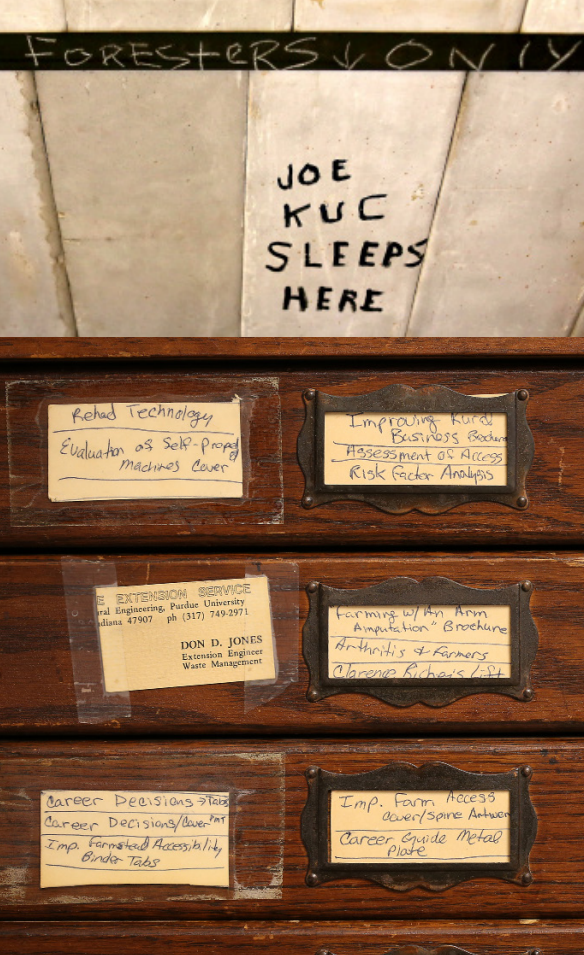 FORESTERS ↓ ONLY
JOE
KUC
SLEEPS
HERE
Rehab Technology
Evaluation of Self-Propel
Machines Cover
Improving Rural
Business Brochure
Assessment of Access
Risk Factor Analysis
E EXTENSION SERVICE
ral Engineering, Purdue University
diana 47907 ph (317) 749-2971
DON D. JONES
Extension Engineer
Waste Management
Farming w/An Arm
Amputation" Brochure
Arthritis & Farmers
Clarence Richer's Lift
Career Decisions → Tabs
Career Decisions/Cover
Imp. Farmstead Accessibility
Binder Tabs
Imp. Farm Access
Cover/Spine Artwork
Career Guide Metal
Plate